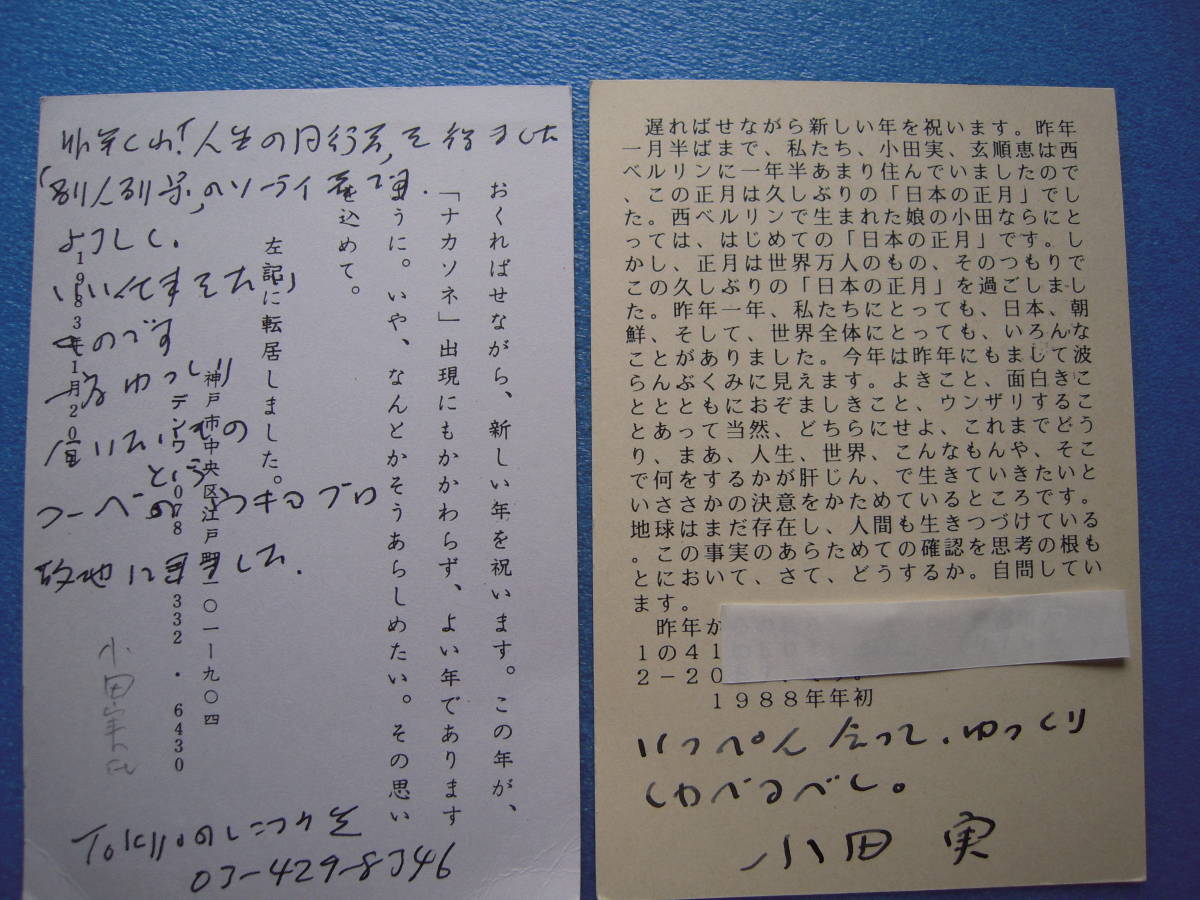 おくればせながら、新しい年を祝います。この年が、
「ナカソネ」出現にもかかわらず、よい年であります
ように。いや、なんとかそうあらしめたい。その思い
を込めて。
左記に転居しました。
神戸市中央区江戸町一〇一―九〇四
デンワ 078・332・6430
1983年1月20日
人生の同行者
を行ました
よろしく。
ものです
ゆっくり
という
小田実氏
03-429-8346
遅ればせながら新しい年を祝います。昨年
一月半ばまで、私たち、小田実、玄順恵は西
ベルリンに一年半あまり住んでいましたので
、この正月は久しぶりの「日本の正月」でし
た。西ベルリンで生まれた娘の小田ならにと
っては、はじめての「日本の正月」です。し
かし、正月は世界万人のもの、そのつもりで
この久しぶりの「日本の正月」を過ごしまし
た。昨年一年、私たちにとっても、日本、朝
鮮、そして、世界全体にとっても、いろんな
ことがありました。今年は昨年にもまして波
らんぶくみに見えます。よきこと、面白きこ
ととともにおぞましきこと、ウンザリするこ
とあって当然、どちらにせよ、これまでどう
り、まあ、人生、世界、こんなもんや、そこ
で何をするかが肝じん、で生きていきたいと
いささかの決意をかためているところです。
地球はまだ存在し、人間も生きつづけている
。この事実のあらためての確認を思考の根も
とにおいて、さて、どうするか。自問してい
ます。
昨年か
1の41
2-20
1988年年初
いっぺん会って、ゆっくり
しゃべるべし。
小田 実